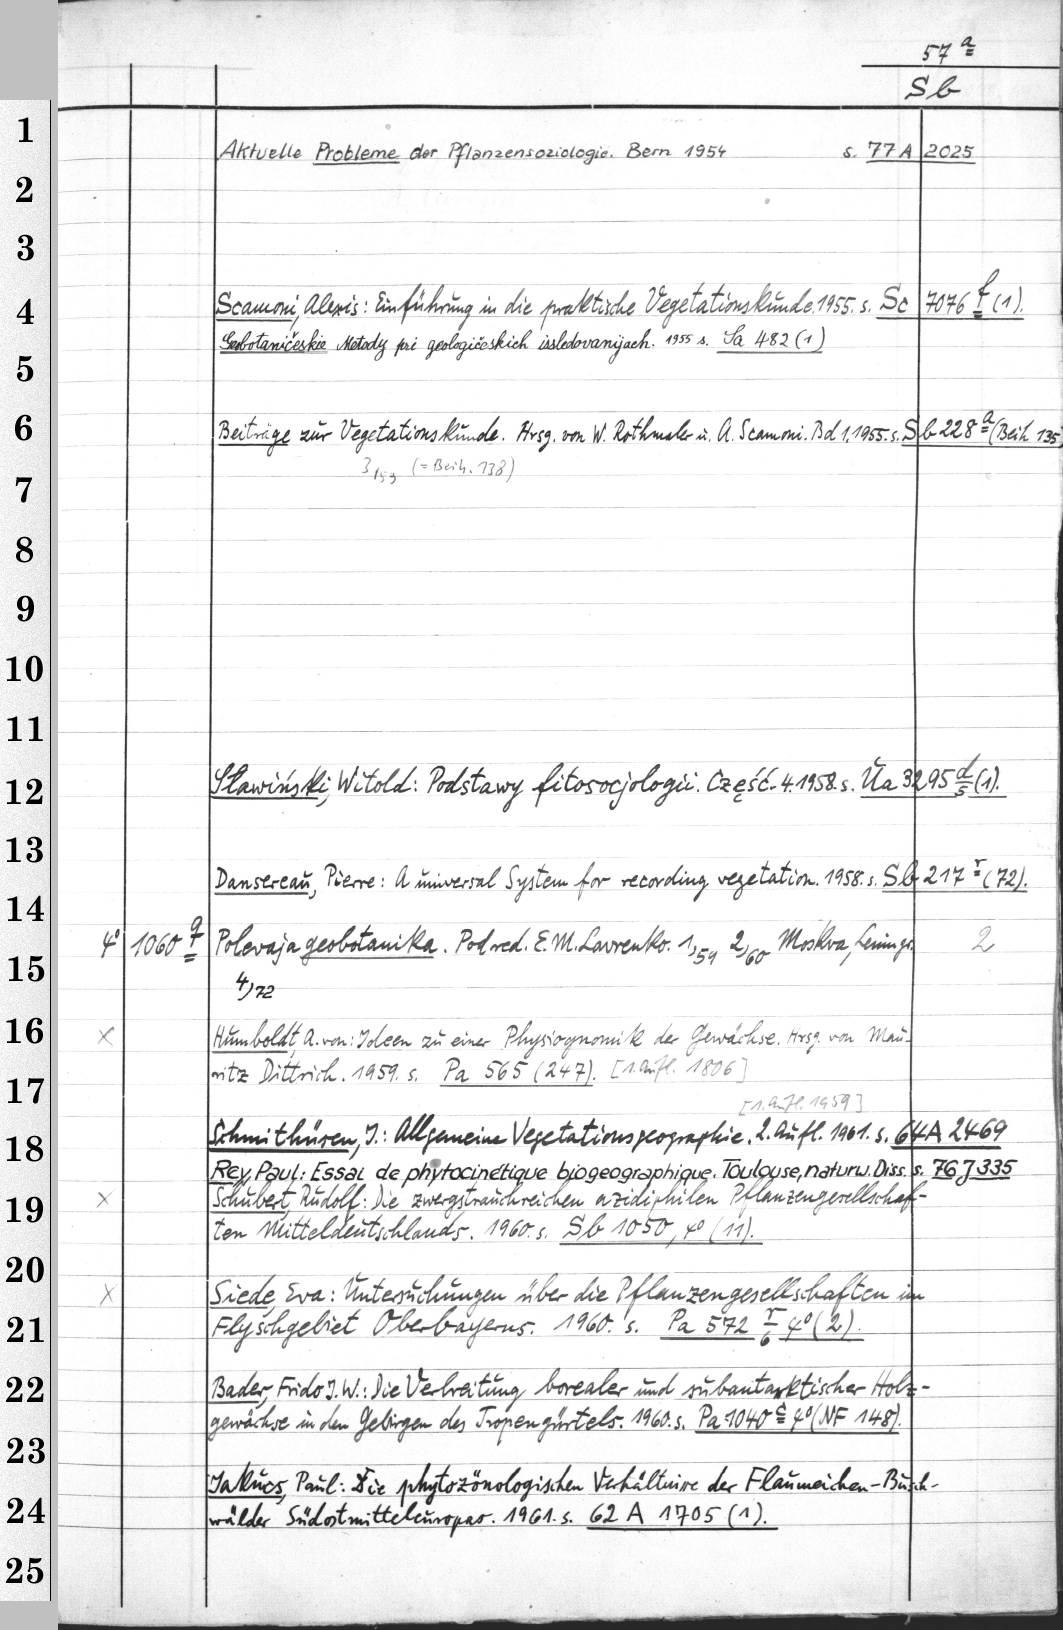 57 a
Sb
1
Aktuelle Probleme der Pflanzensoziologie. Bern 1954 s. 77 A 2025
2
3
4 Scamoni, Alexis: Einführung in die praktische Vegetationskunde. 1955. s. Sc 7076 f/t (1).
Geobotaničeskie Metody pri geologičeskich issledovanijach. 1955 s. Sa 482 (1)
5
6 Beiträge zur Vegetationskunde. Hrsg. von W. Rothmaler u. A. Scamoni. Bd 1. 1955. s. Sb 228 a (Beih. 135
3, 53 (= Beih. 138)
7
8
9
10
11
12 Sławiński, Witold: Podstawy fitosocjologii. Część. 4. 1958. s. Üa 3295 d/s (1).
13
Dansereau, Pierre: A universal System for recording vegetation. 1958. s. Sb 217 r (72).
14
4° 1060 q/t Polevaja geobotanika. Pod red. E. M. Lavrenko. 1,59 2,60 Moskva, Leningr. 2
15 4,72
16 × Humboldt, A. von: Ideen zu einer Physiognomik der Gewächse. Hrsg. von Mau-
ritz Dittrich. 1959. s. Pa 565 (247). [1. Aufl. 1806]
17
[1. Aufl. 1959]
18 Schmithüsen, J.: Allgemeine Vegetationsgeographie. 2. Aufl. 1961. s. 64 A 2469
Rey, Paul: Essai de phytocinétique biogéographique. Toulouse, naturw. Diss. s. 76 J 335
19 × Schubert, Rudolf: Die zwergstrauchreichen azidiphilen Pflanzengesellschaf-
ten Mitteldeutschlands. 1960. s. Sb 1050, 4° (11).
20
× Siede, Eva: Untersuchungen über die Pflanzengesellschaften im
21 Flyschgebiet Oberbayerns. 1960. s. Pa 572 r/6 4° (2).
22 Bader, Frido J. W.: Die Verbreitung borealer und subantarktischer Holz-
gewächse in den Gebirgen des Tropengürtels. 1960. s. Pa 1040 c 4° (NF 148).
23
Jakucs, Paul: Die phytozönologischen Verhältnisse der Flaumeichen-Busch-
24 wälder Südostmitteleuropas. 1961. s. 62 A 1705 (1).
25